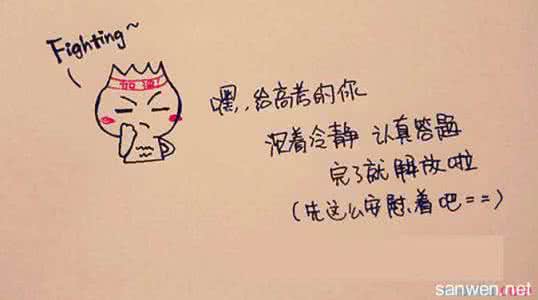 Fighting~
加油!
嘿,给高考的你
沉着冷静 认真答题
完了就解放啦
(先这么安慰着吧==)
sanwen.net